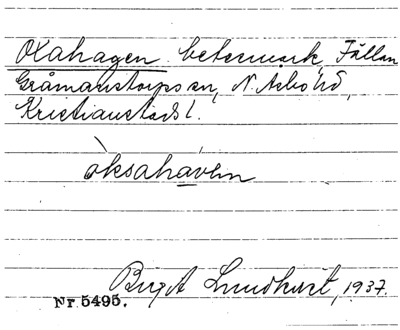 Oxahagen betesmark, Fällan
Gråmanstorps sn, N. Åsbo hd,
Kristianstads l.
òksahávεn
Birgit Lundqvist, 1937.
Nr. 5495.